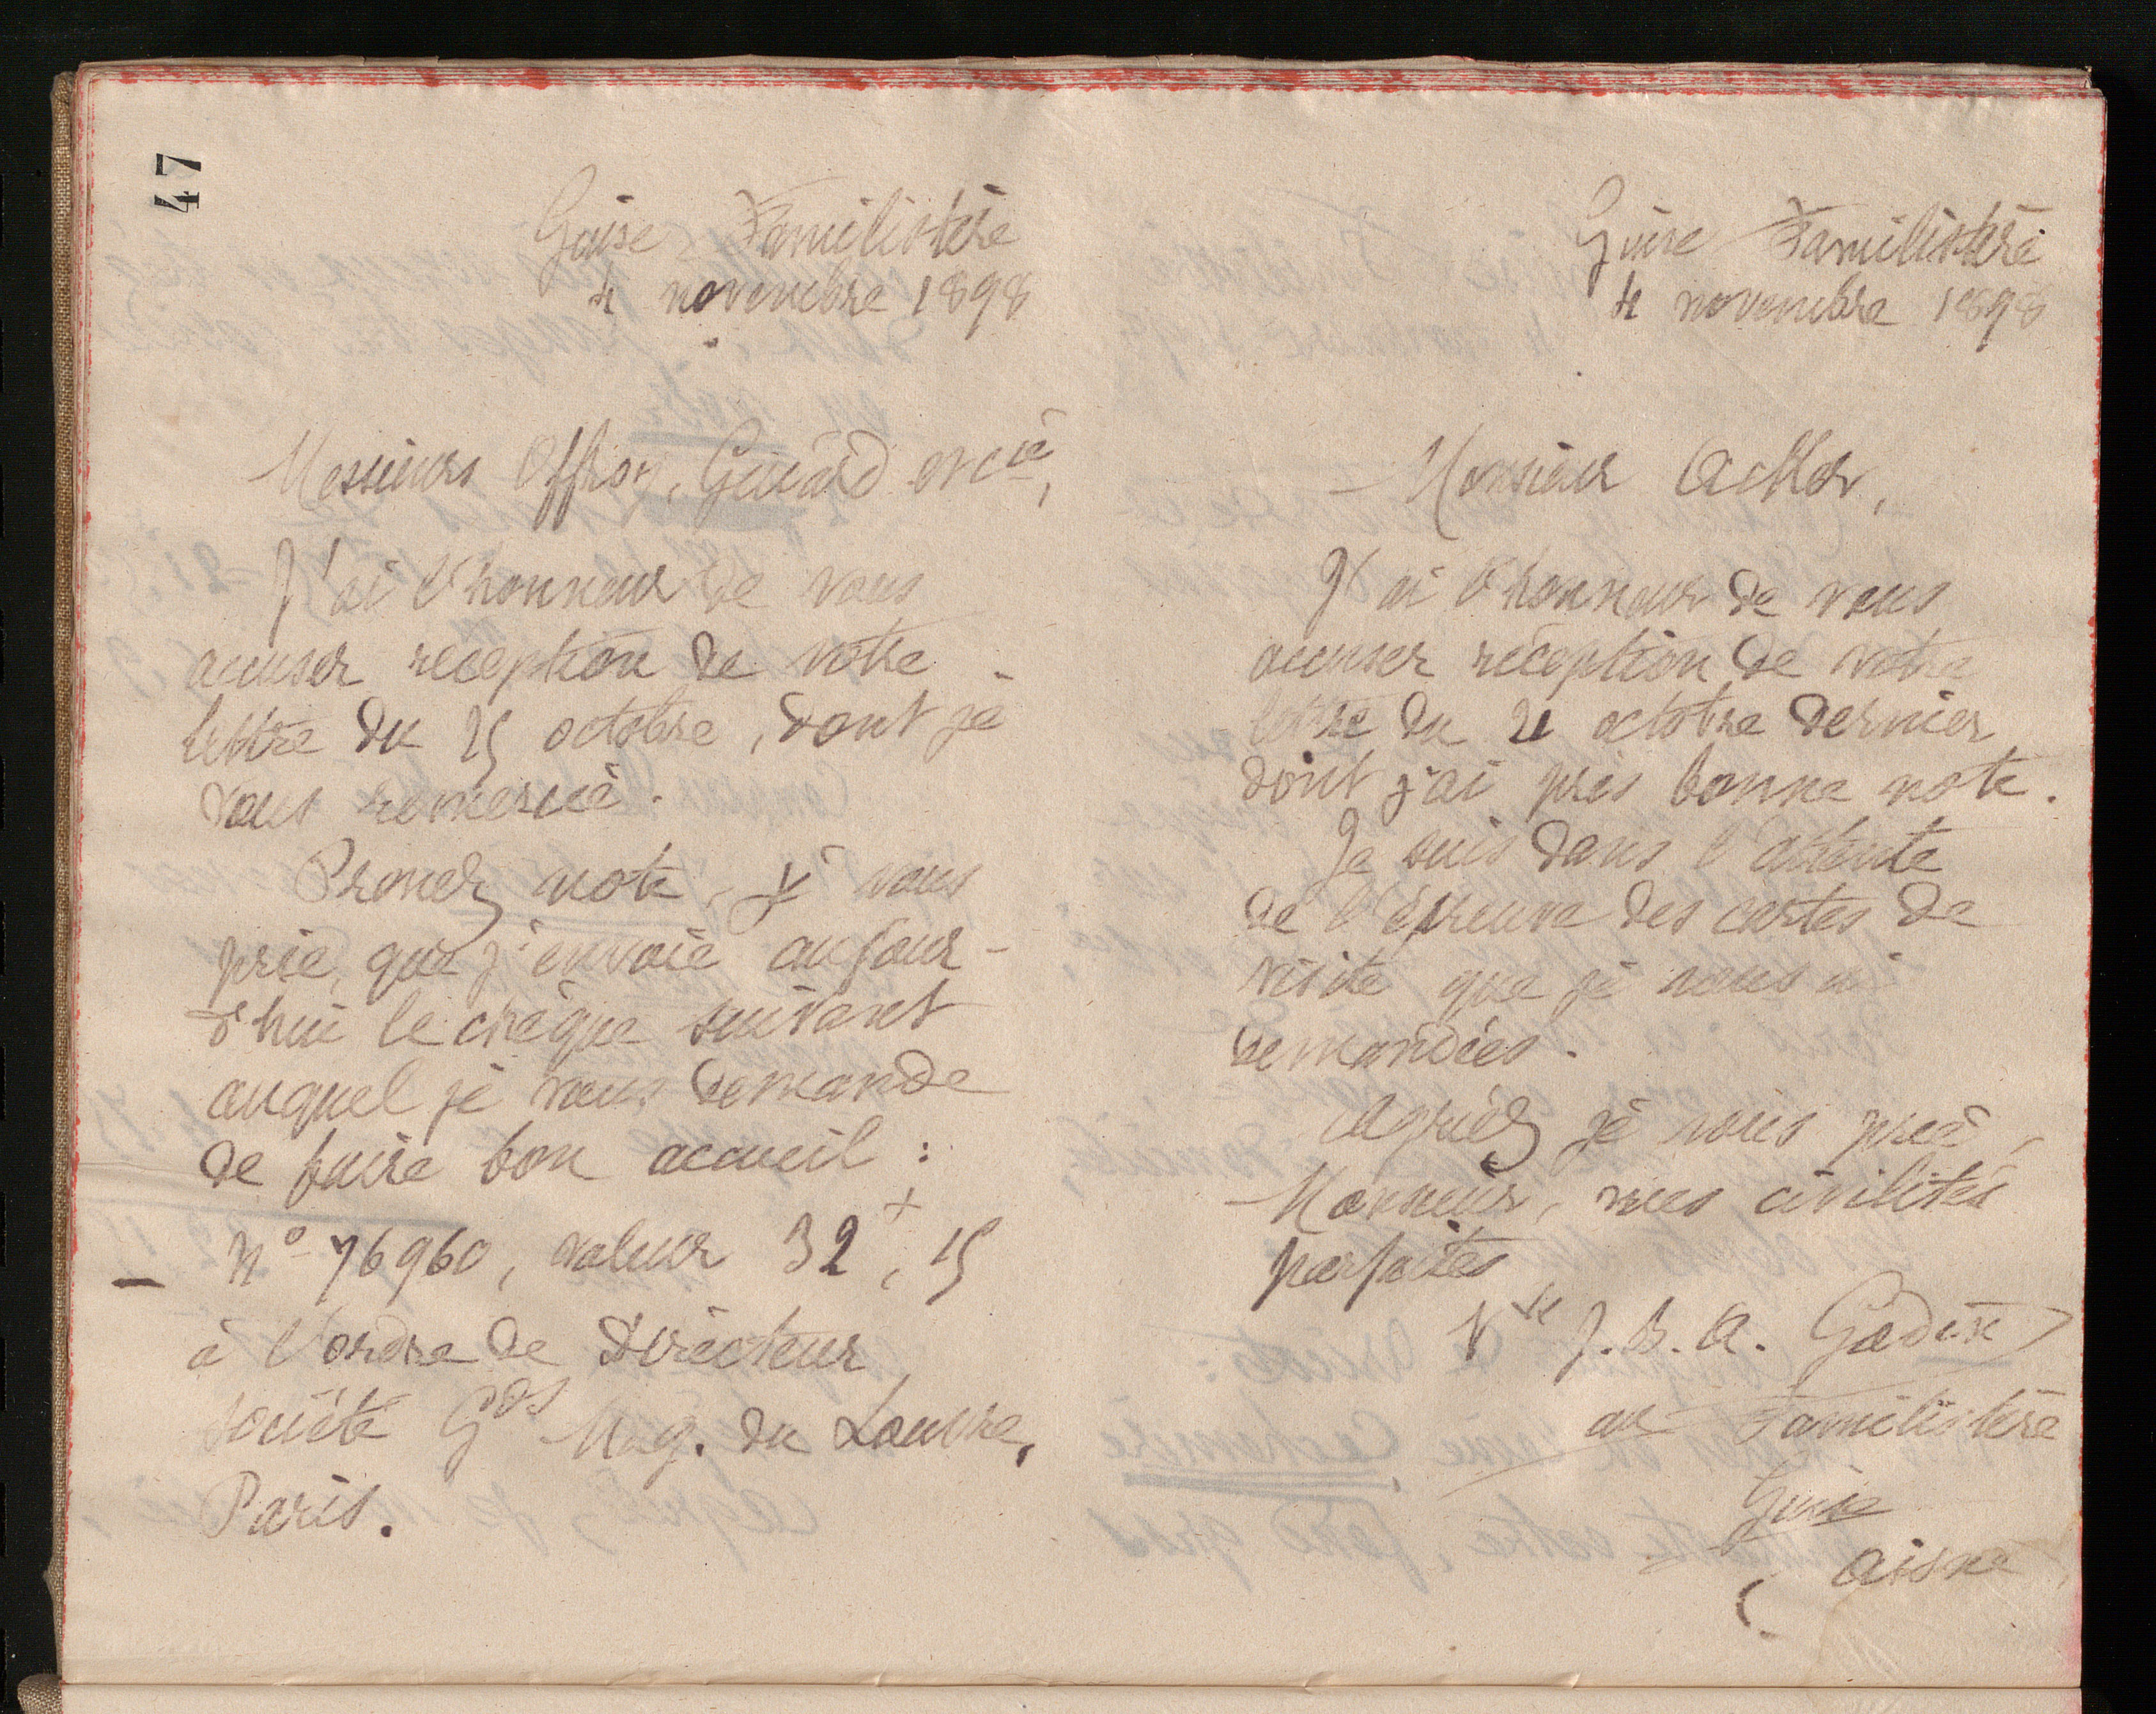 47
Guise Familistère
4 novembre 1898
Messieurs Offroy, Guiard et Cie,
J'ai l'honneur de vous
accuser réception de votre
lettre du 25 octobre, dont je
vous remercie.
Prenez note, je vous
prie, que j'envoie aujour-
d'hui le chèque suivant
auquel je vous demande
de faire bon accueil :
— N° 76960, valeur 32, 15
à l'ordre de Directeur
société Gds Mag. du Louvre,
Paris.
Guise Familistère
4 novembre 1898
Monsieur Acker,
J'ai l'honneur de vous
accuser réception de votre
lettre du 21 octobre dernier
dont j'ai pris bonne note.
Je suis dans l'attente
de l'épreuve des cartes de
visite que je vous ai
demandées.
Agréez je vous prie,
Monsieur, mes civilités
parfaites
Vve J. B. A. Godin
au Familistère
Guise
Aisne